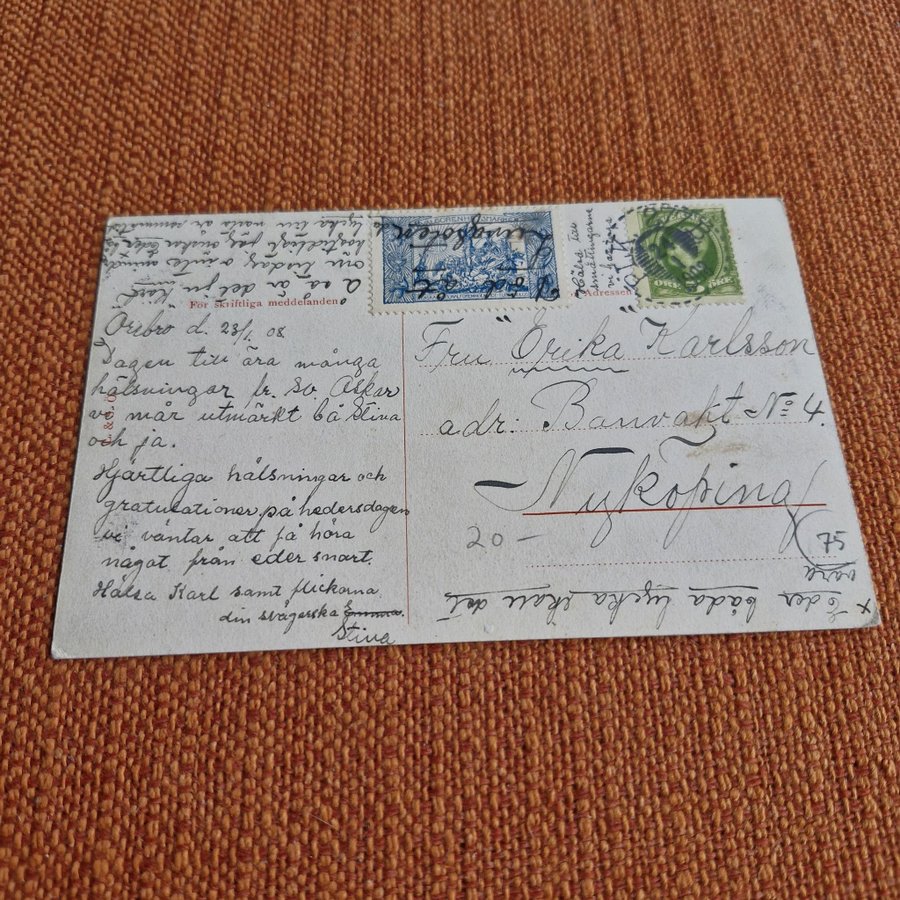 För skriftliga meddelanden
Adressen
Örebro d. 23/1. 08.
Dagen till ära många
hälsningar fr. Sv. Oskar
vi mår utmärkt bå Stina
och ja.
Hjärtliga hälsningar och
gratulationer på hedersdagen
vi väntar att få höra
något från eder snart.
Hälsa Karl samt flickorna
din svägerska Emma.
Stina
Fru Erika Karlsson
adr: Banvakt No 4.
Nyköping
20 -
75
x Eder båda lycka skall det
vara
Hälsa till
småttingarne
å så är det ju Karl
lycka till